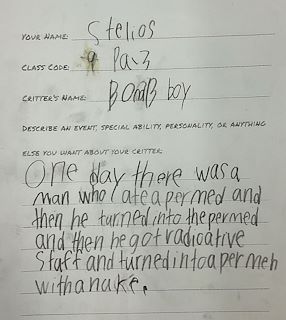 YOUR NAME: Stelios
CLASS CODE: 9 Pa13
CRITTER'S NAME: BOmB boy
DESCRIBE AN EVENT, SPECIAL ABILITY, PERSONALITY, OR ANYTHING
ELSE YOU WANT ABOUT YOUR CRITTER:
One day there was a
man who ate a permed and
then he turned into the permed
and then he got radioative
Staff and turned into a per meh
with a nake.